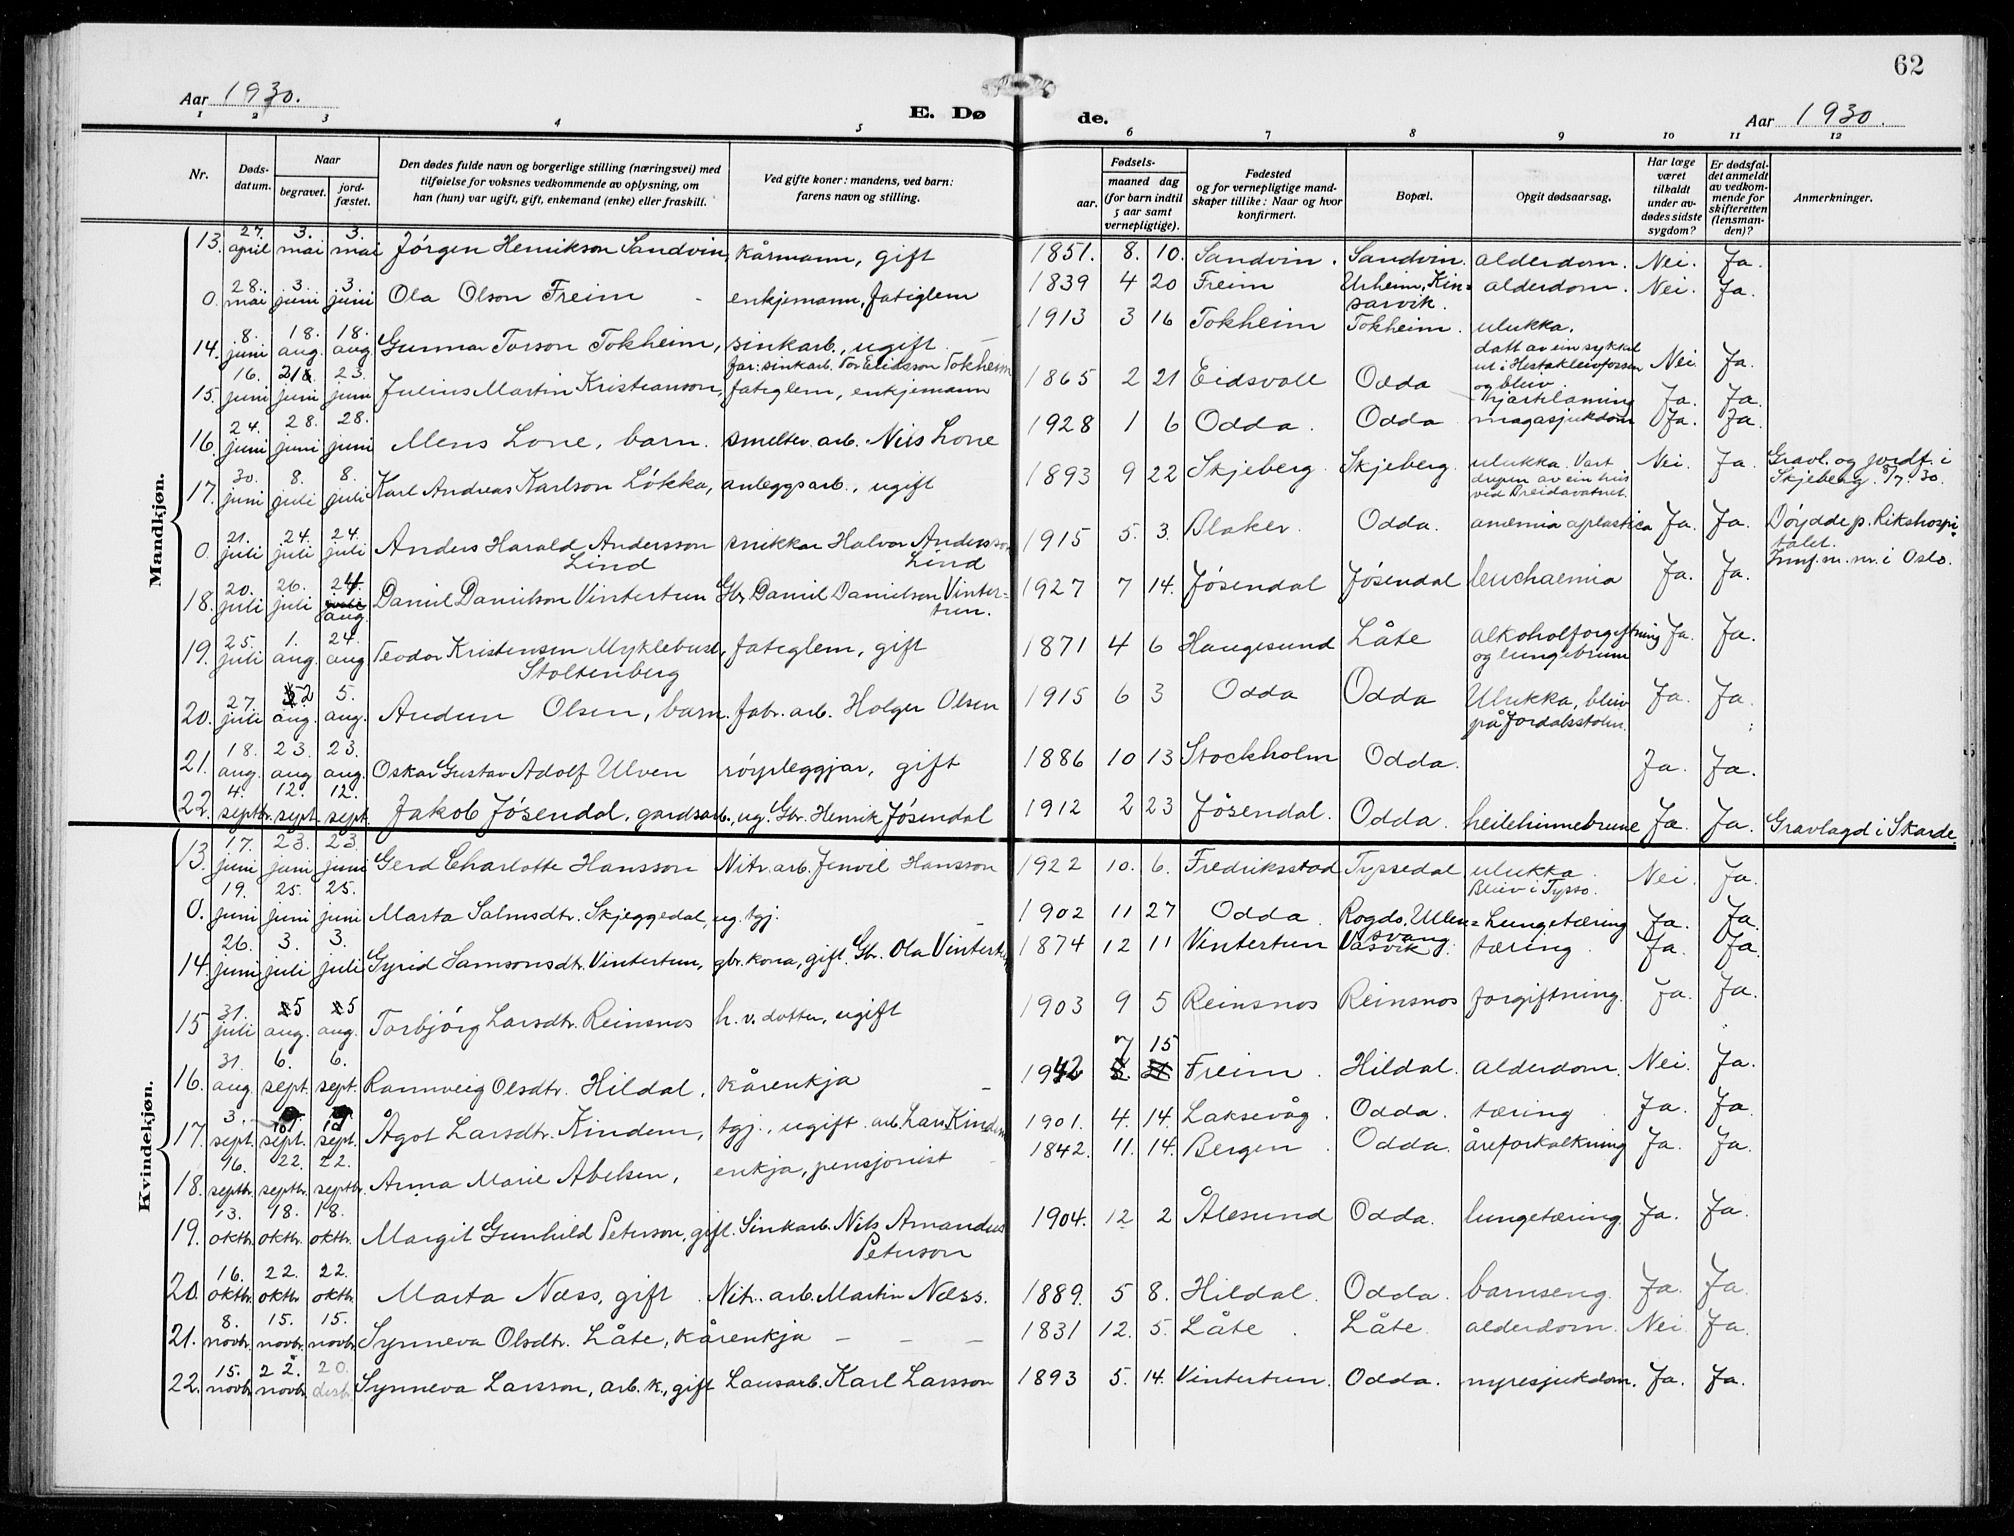 62
Aar 1930. E. Dø de. Aar 1930.
1 2 3 4 5 6 7 8 9 10 11 12
Nr. Døds-datum. Naar begravet. jord-fæstet. Den dødes fulde navn og borgerlige stilling (næringsvei) med tilføielse for voksnes vedkommende av oplysning, om han (hun) var ugift, gift, enkemand (enke) eller fraskilt. Ved gifte koner: mandens, ved barn: farens navn og stilling. Fødsels- aar. maaned dag (for barn indtil 5 aar samt vernepligtige). Fødested og for vernepligtige mand-skaper tillike: Naar og hvor konfirmert. Bopæl. Opgit dødsaarsag. Har læge været tilkaldt under av-dødes sidste sygdom? Er dødsfal-det anmeldt av vedkom-mende for skifteretten (lensman-den)? Anmerkninger.
Mandkjøn.
13. 27. april 3. mai 3. mai Jørgen Henrikson Sandvin, kårmann, gift 1851. 8. 10. Sandvin. Sandvin. alderdom. Nei. Ja.
0. 28. mai 3. juni 3. juni Ola Olson Freim - enkjemann, fatiglem 1839 4 20 Freim Urheim, Kinsarvik. alderdom. Nei. Ja.
14. 8. juni 18. aug. 18. aug. Gunnar Torson Tokheim, sinkarb., ugift. far: sinkarb. Tor Eiriksson Tokheim 1913 3 16 Tokheim Tokheim. ulukka. datt av ein sykkel ut i Hestakleivfossen og bleiv Nei. Ja.
15. 16. juni 21 juni 23. juni Julius Martin Kristianson, fatiglem, enkjemann 1865 2 21 Eidsvoll Odda hjartelaming Ja. Ja.
16. 24. juni 28. juni 28. juni Mens Lone, barn. smeltev. arb. Nils Lone 1928 1 6 Odda. Odda magasjukdom Ja. Ja.
17. 30. juni 8. juli 8. juli Karl Andreas Karlson Løkka, anleggsarb., ugift 1893 9 22 Skjeberg. Skjeberg. ulukka. Vart drepen av ein heis ved Breidavatnet. Nei. Ja. Gravl. og jordf. i Skjeberg 8/7. 30.
0. 21. juli 24. juli 24. juli Anders Harald Andersson Lind snikkar Halvor Andersson Lind 1915 5. 3. Blaker. Odda. anæmia aplastica Ja. Ja. Døydde p. Rikshospitalet. Innf. m. nr. i Oslo.
18. 20. juli 26. juli 24. aug. Daniel Danielson Vintertun Gbr. Daniel Danielson Vintertun. 1927 7 14. Jøsendal Jøsendal leuchaemia Ja. Ja.
19. 25. juli 1. aug. 24. aug Teodor Kristensen Myklebust, Stoltenberg fatiglem, gift 1871 4 6 Haugesund Låte alkoholforgiftning og lungebrune Ja. Ja.
20. 27. juli 2 aug. 5. aug. Audun Olsen, barn. fabr. arb. Holger Olsen 1915 6 3 Odda Odda Ulukka, bleiv på Jordalsstolen. Ja. Ja.
21. 18. aug. 23. aug 23. aug. Oskar Gustav Adolf Ulven røyrleggjar, gift 1886 10 13 Stockholm Odda. Ja. Ja.
22. 4. septbr. 12. sept. 12. sept. Jakob Jøsendal, gardsarb., ug. Gbr. Henrik Jøsendal 1912 2 23 Jøsendal. Odda. heilehinnebrune Ja. Ja. Gravlagd i Skarde.
Kvindekjøn.
13. 17. juni 23. juni 23. juni Gerd Charlotte Hansson Nitr. arb. Hansson 1922 10. 6. Fredriksstad Tyssedal ulukka. Bleiv i Tysso. Nei. Ja.
0. 19. juni 25. juni 25. juni Marta Salmsdtr. Skjeggedal, ug. tgj. - 1902 11 27 Odda. Rogde, Ullensvang Lungetæring Ja. Ja.
14. 26. juni 3. juli 3. juli Gyrid Samsonsdtr. Vintertun, gbr. kona, gift. Gbr. Ola Vintertun 1874 12 11 Vintertun Vasvik tæring. Ja. Ja.
15 31. juli 5 aug. 5 aug. Torbjørg Larsdtr. Reinsnos h. v. dotter, ugift 1903 9 5 Reinsnos Reinsnos forgiftning. Ja. Ja.
16. 31. aug 6. sept. 6. sept. Rannveig Olsdtr. Hildal. kårenkja - 1942 7 15 Freim. Hildal. alderdom. Nei. Ja.
17. 3. sept. 10. sept. 10. sept. Ågot Larsdtr. Kindem, tgj., ugift. arb. Lars Kindem 1901. 4. 14. Laksevåg. Odda. tæring Ja. Ja.
18. 16. septbr. 22. septbr. 22. septbr. Anna Marie Abelsen, enkja, pensjonist - 1842. 11. 14. Bergen. Odda. åreforkalkning Ja. Ja.
19. 13. oktbr. 18. oktbr. 18. oktbr. Margit Gunhild Peterson, gift. Sinkarb. Nils Amandus Peterson 1904. 12 2 Ålesund Odda. lungetæring. Ja. Ja.
20. 16. oktbr. 22. oktbr 22. oktbr. Marta Næss, gift. Nitr. arb. Martin Næss. 1889. 5 8. Hildal. Odda. barnseng. Ja. Ja.
21. 8. novbr. 15. novbr. 15. novbr. Synneva Olsdtr. Låte, kårenkja - - - 1831 12. 5. Låte. Låte. alderdom. Nei. Ja.
22. 15. novbr. 22. novbr. 20. desbr. Synneva Larsson, arb. k., gift Lausarb. Karl Larsson 1893 5. 14. Vintertun. Odda. nyresjukdom. Ja. Ja.